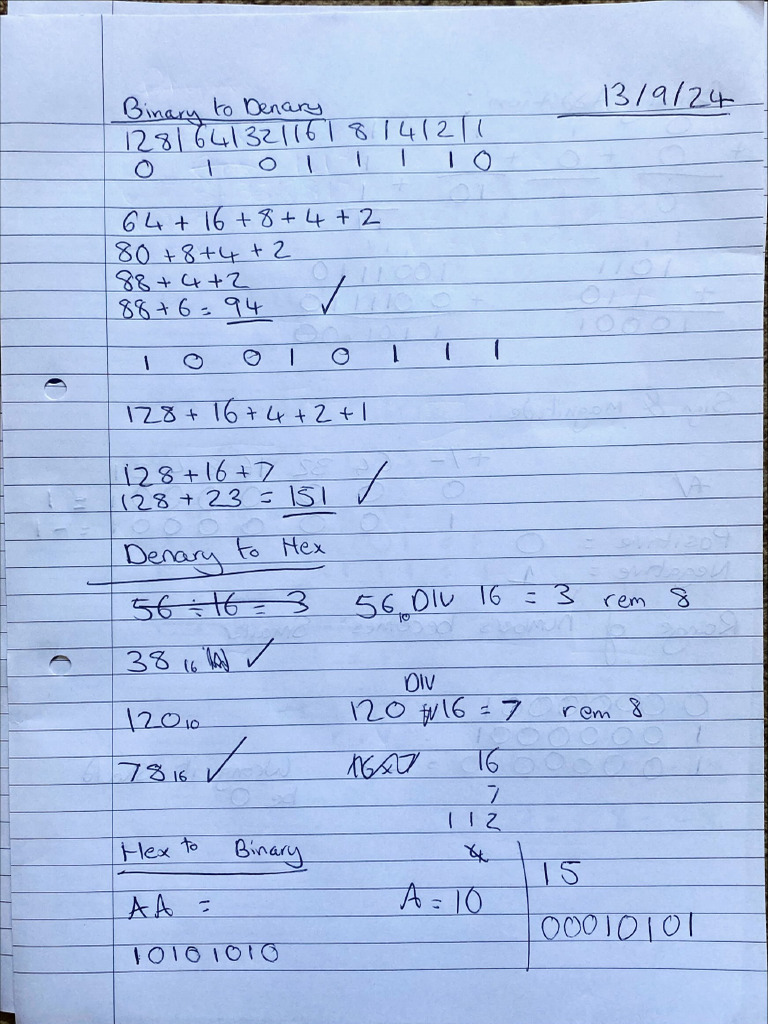 13/9/24
Binary to Denary
128|64|32|16|8|4|2|1
0 1 0 1 1 1 1 0
64 + 16 + 8 + 4 + 2
80 + 8 + 4 + 2
88 + 4 + 2
88 + 6 = 94 ✓
1 0 0 1 0 1 1 1
128 + 16 + 4 + 2 + 1
128 + 16 + 7
128 + 23 = 151 ✓
Denary to Hex
56 ÷ 16 = 3 56₁₀ DIV 16 = 3 rem 8
38₁₆ ✓
DIV
120₁₀ 120 16 = 7 rem 8
78₁₆ ✓ 16
7
112
Hex to Binary
AA = A = 10
10101010
15
00010101